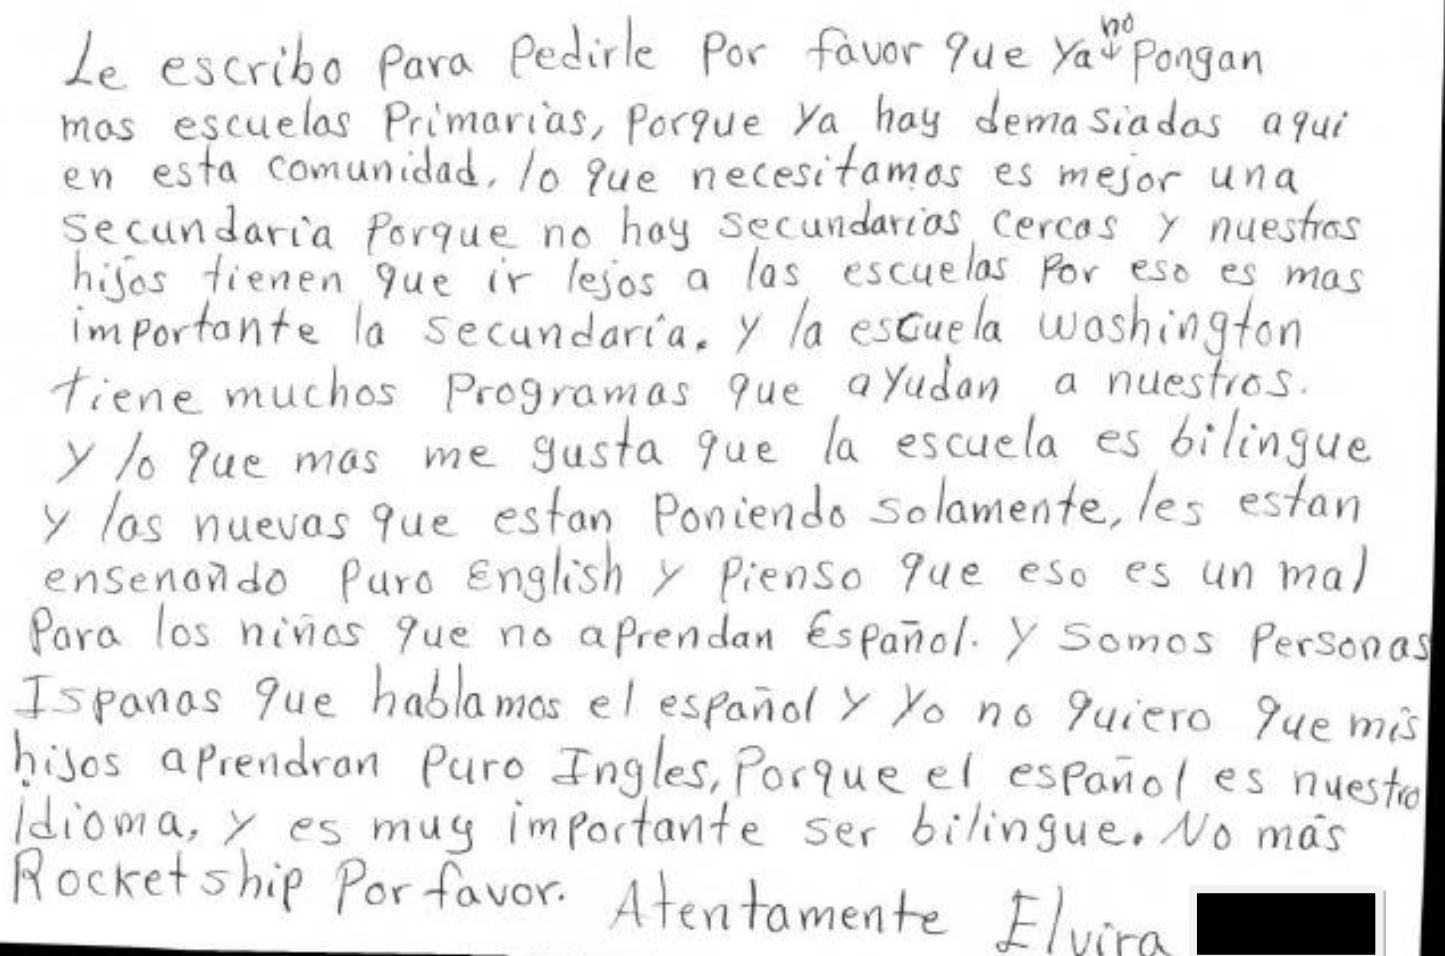 Le escribo para Pedirle Por favor que Ya no Pongan
mas escuelas Primarias, Porque Ya hay demasiadas aqui
en esta comunidad. lo que necesitamos es mejor una
secundaria Porque no hay secundarias cercas y nuestros
hijos tienen que ir lejos a las escuelas Por eso es mas
importante la secundaria. y la escuela washington
tiene muchos Programas que ayudan a nuestros.
y lo que mas me gusta que la escuela es bilingue
y las nuevas que estan Poniendo solamente, les estan
ensenañdo Puro English y Pienso que eso es un mal
Para los niños que no aprendan Español. Y somos Personas
Ispanas que hablamos el español y Yo no quiero que mis
hijos aprendran Puro Ingles, Porque el español es nuestro
idioma, y es muy importante ser bilingue. No más
Rocketship Por favor. Atentamente Elvira